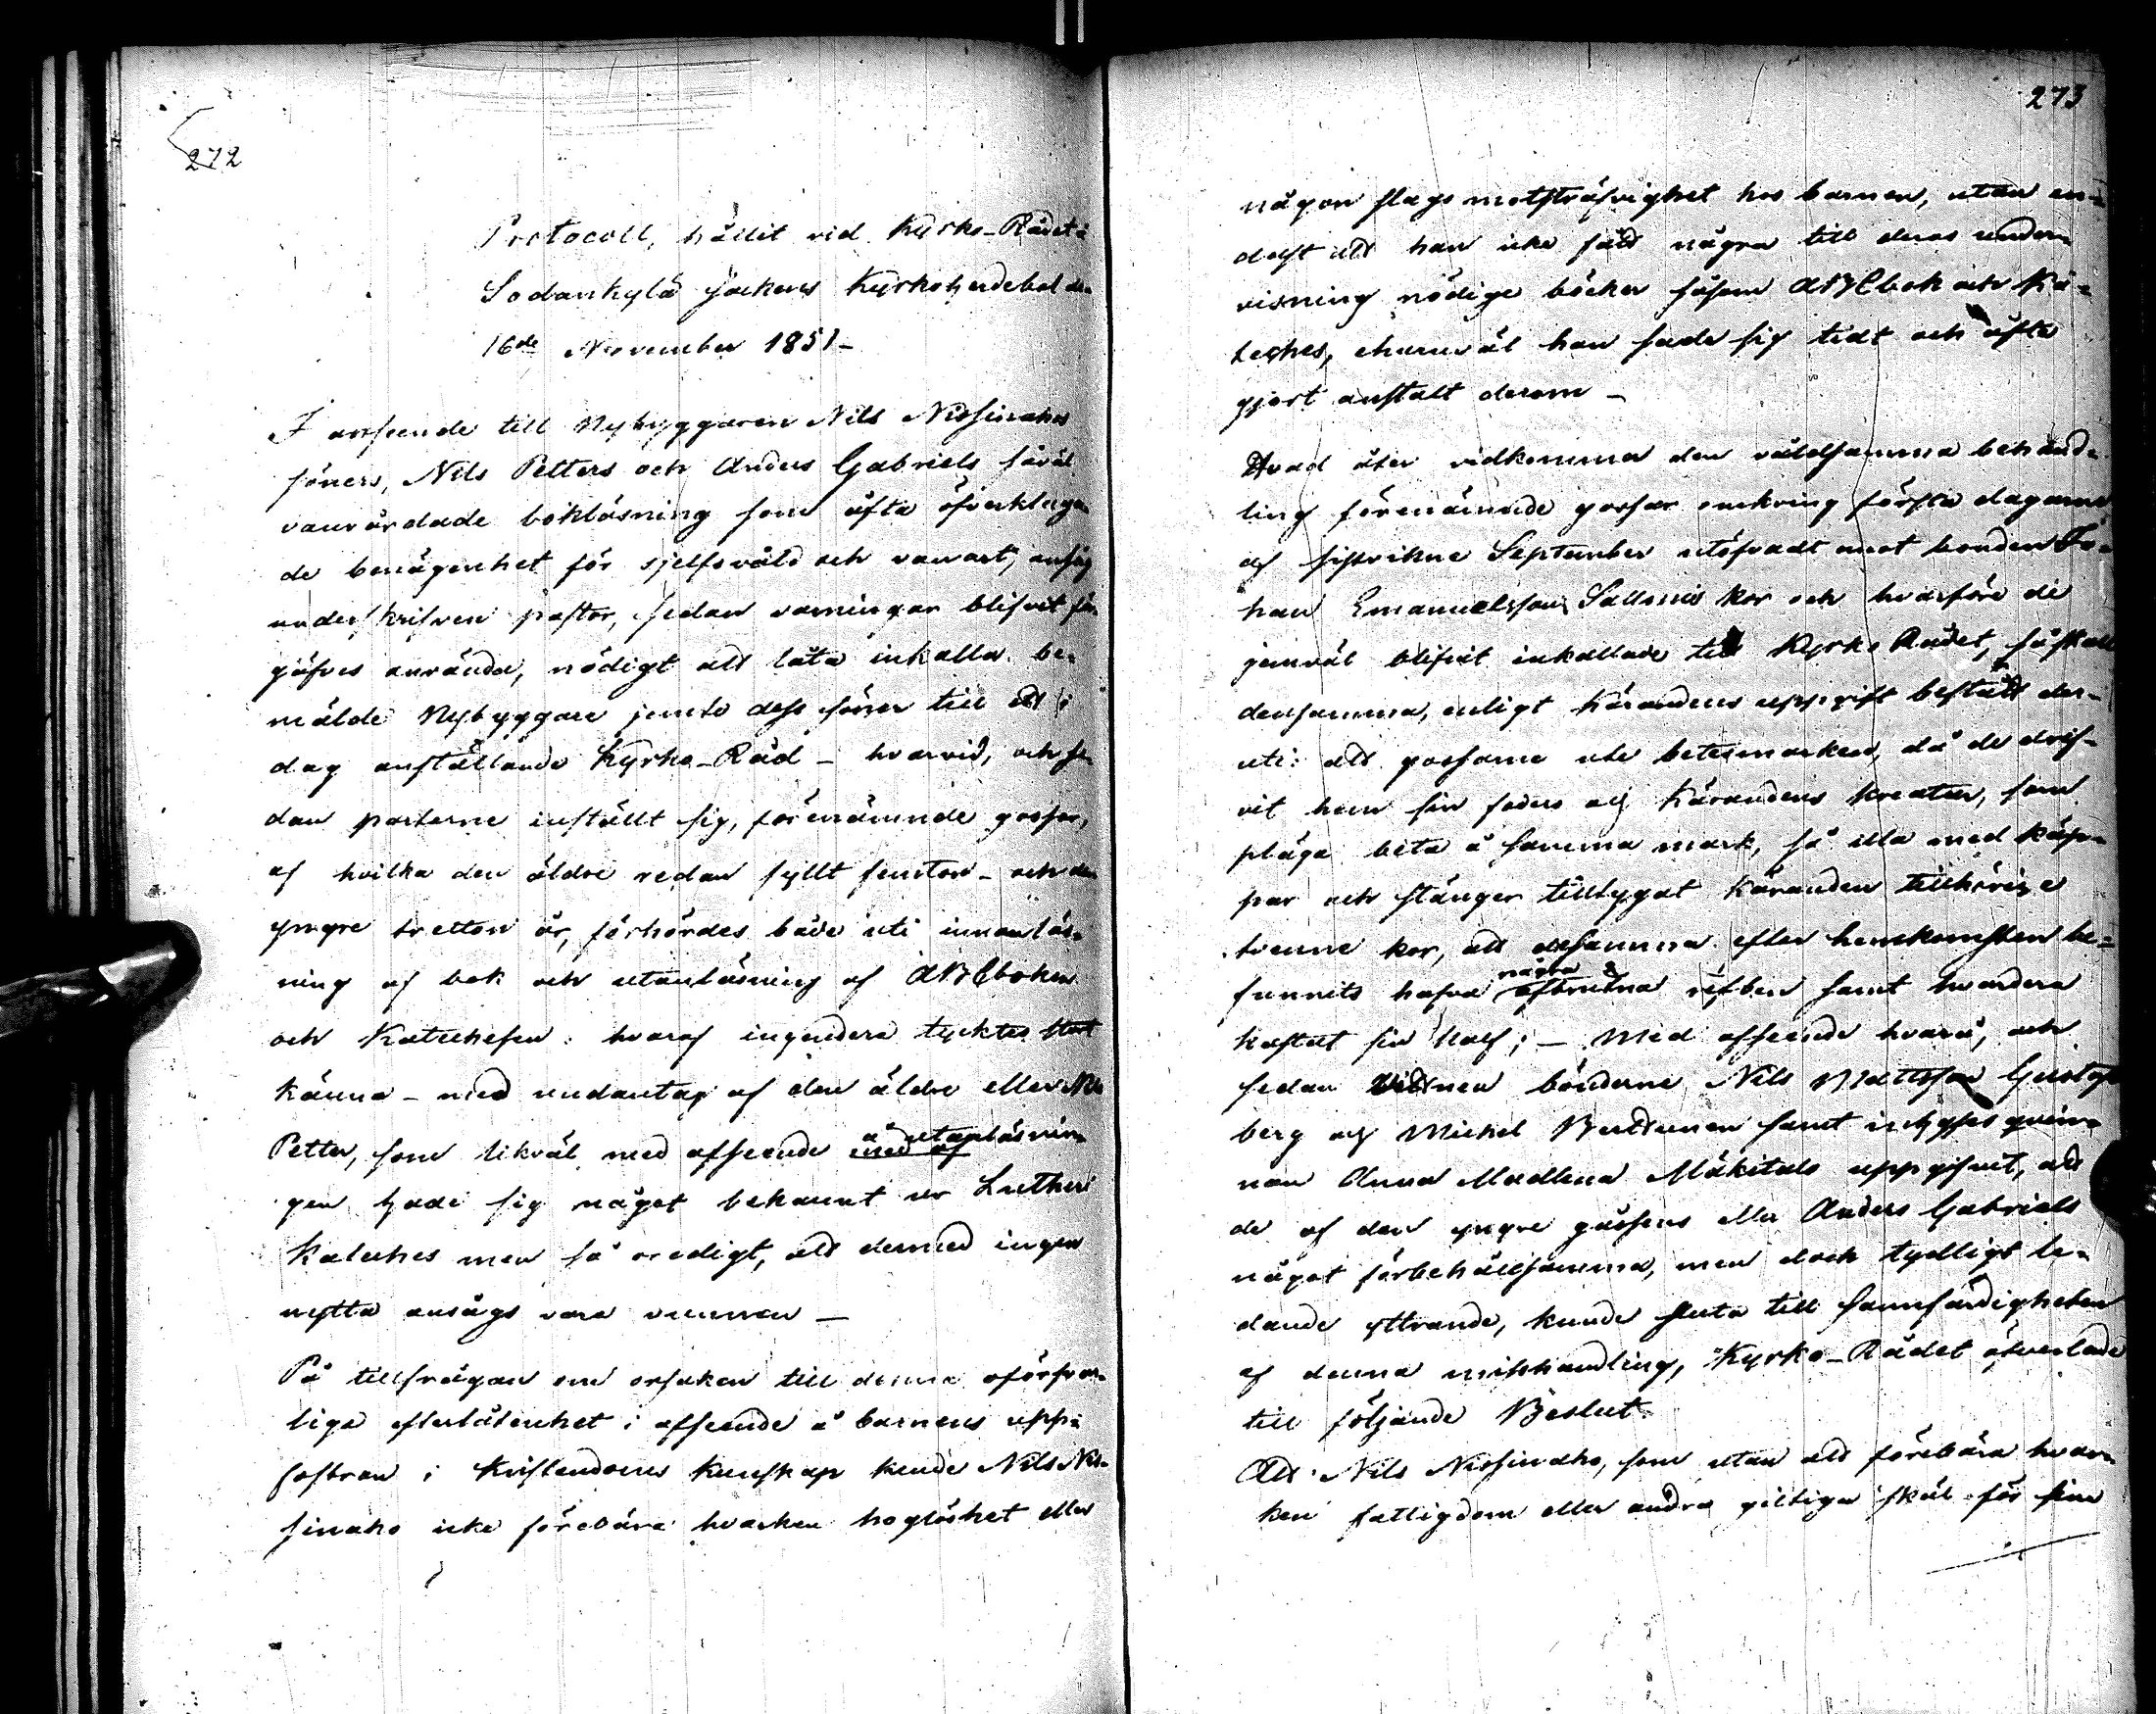 272
Protocoll, hållit vid Kyrko-Rådet i
Sodankylä sockens Kyrkoherdebol den
16de November 1851-
I anseende till Nybyggaren Nils Nissinahos
söners, Nils Petters och Anders Gabriels såväl
vanvårdade bokläsning som ofta öfverklaga-
de benägenhet för sjelfsvåld och vanart, ansåg
underskrifven pastor, sedan varningar blifvit få-
gäfves använda, nödigt att låta inkalla be-
mälde Nybyggare jemte dess söner till att i
dag anställande Kyrko-Råd - hvarvid, och se-
dan parterne inställt sig, förenämnde gossar,
af hvilka den äldre redan fyllt femton - och den
yngre tretton år, förhördes både uti innanläs-
ning af bok och utanläsning af ABCboken
och Katechesen: hvaraf ingendera tycktes stort
känna - med undantag af den äldre eller Nils
Petter, som likväl med afseende med af å utanläsnin-
gen hade sig något bekannt ur Lutheri
Kateches men så oredigt, att dermed ingen
nytta ansågs vara vunnen -
På tillfrågan om orsaken till denna oförsvar-
liga efterlåtenhet i afseende å barnens upp-
fostran i Kristendoms kunskap kunde Nils Nis-
sinaho icke förebära hvarken hoglöshet eller
273
någon slags motsträfvighet hos barnen, utan en-
dast att han icke fått några till deras under-
visning nödige böcker såsom ABCbok och Ka-
teches, ehuruväl han sade sig tidt och ofta
gjort anstalt derom -
Hvad åter vidkommer den våldsamma behand-
ling förenämnde gossar omkring första dagarne
af sistvikne September utöfvadt mot bonden Jo-
han Emanuelsson Sallomis kor och hvarföre de
jemväl blifvit inkallade till Kyrko Rådet, så skall
densamma, enligt Kärandens uppgift bestått der-
uti: att gossarne ute betesmarken, då de drif-
vit hem sin faders och Kärandens kreatur, som
pläga beta å samma mark, så illa med käp-
par och stänger tilltygat Käranden tillhörige
trenne kor, att desamma efter hemkomsten be-
funnits hafva några afbrutna refben samt hvardera
kastat sin kalf; - Med afseende hvarå, och
sedan vittnen bönderne Nils Mattsson Gustafs-
berg och Mickel Buttunen samt inhyses qvin-
nan Anna Madlena Mäkitalo uppgifvit, att
de af den yngre gossens eller Anders Gabriels
något förbehållsamma, men dock tydligt le-
dande yttrande, kunde sluta till sannfärdigheten
af denna misshandling, Kyrko-Rådet öfverlade
till följande Beslut.
Att Nils Nissinaho, som utan att förebära hvar-
ken fattigdom eller andra giltiga skäl för sin